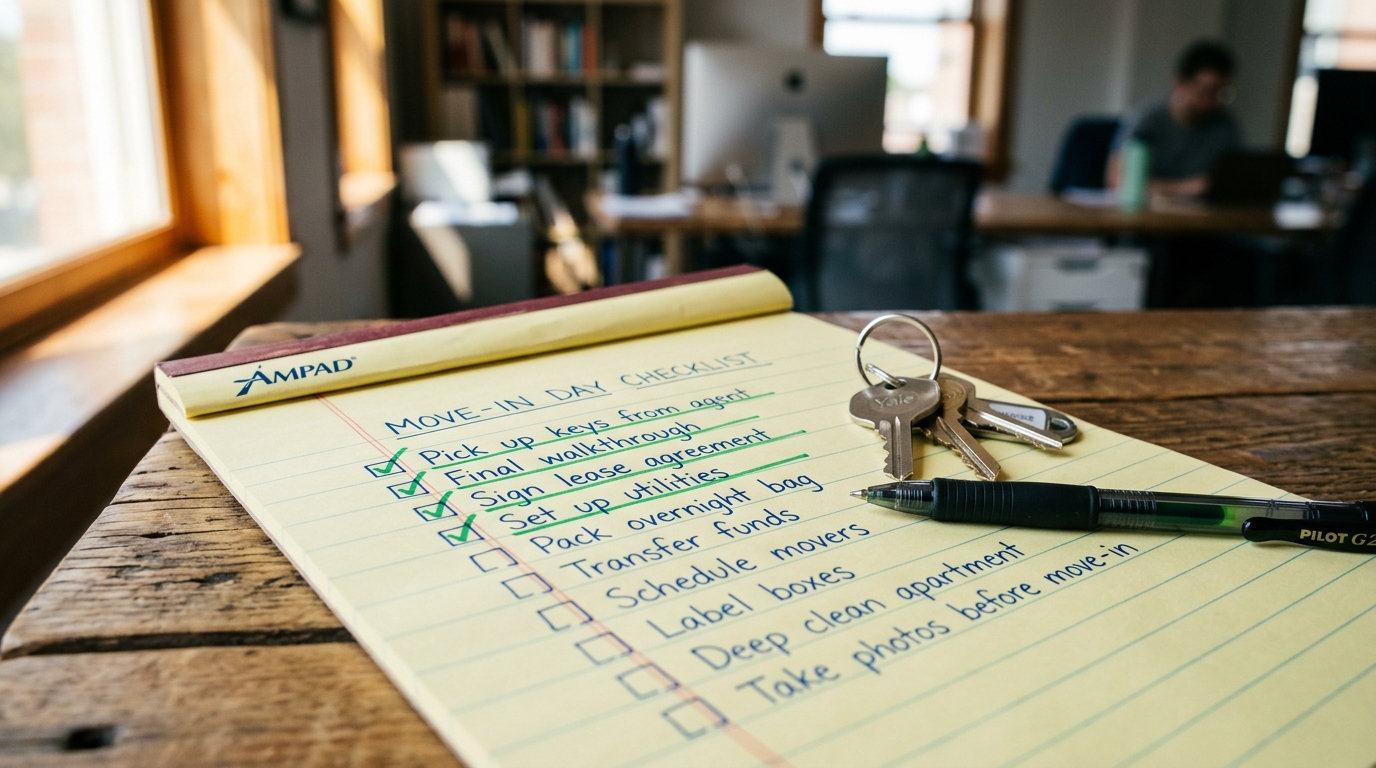 AMPAD®
MOVE-IN DAY CHECKLIST
Pick up keys from agent
Final walkthrough
Sign lease agreement
Set up utilities
Pack overnight bag
Transfer funds
Schedule movers
Label boxes
Deep clean apartment
Take photos before move-in
Yale
PILOT G2